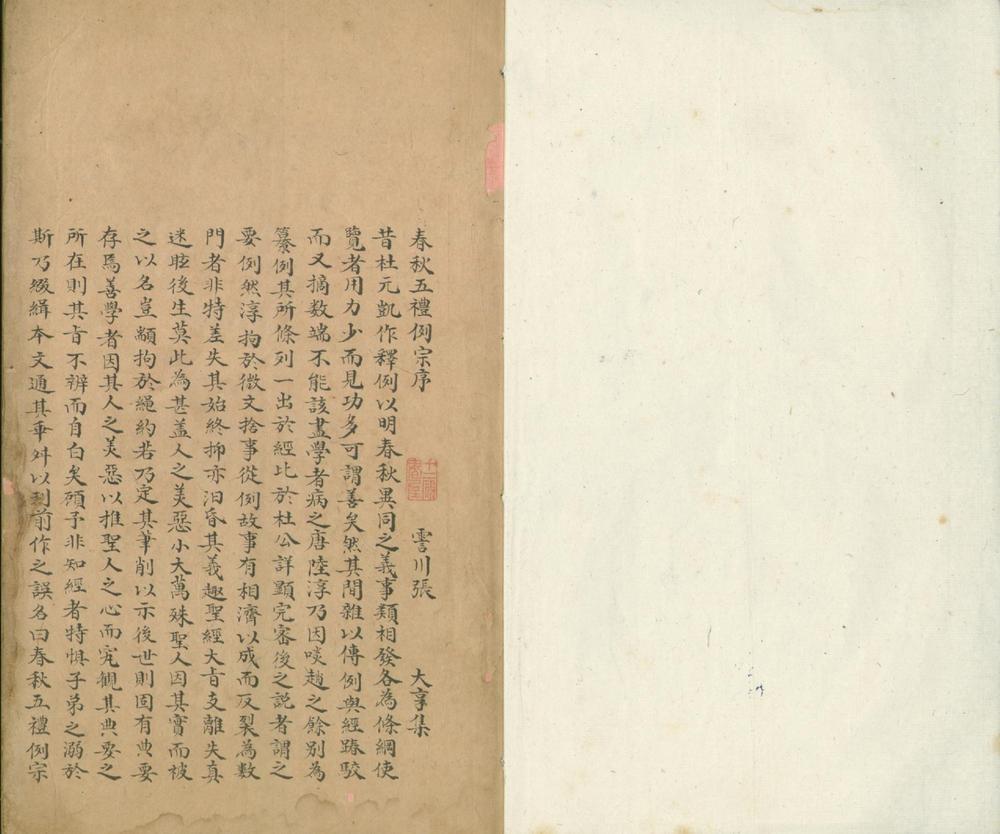 春秋五禮例宗序
霅川張 大亨集
昔杜元凱作釋例以明春秋異同之義事類相發各為條綱使
覽者用力少而見功多可謂善矣然其間雜以傳例與經踳駮
而又摘数端不能該盡學者病之唐陸淳乃因啖趙之餘別為
纂例其所條列一出於經比於杜公詳顯完審後之説者謂之
要例然淳拘於微文捨事從例故事有相濟以成而反裂為数
門者非特差失其始終抑亦汩昏其義趣聖經大旨支離失真
迷眩後生莫此為甚盖人之美惡小大萬殊聖人因其實而被
之以名豈顓拘於繩約若乃定其筆削以示後世則固有典要
存焉善學者因其人之美惡以推聖人之心而究觀其典要之
所在則其旨不辨而自白矣顧予非知經者特惧子弟之溺於
斯乃綴緝本文通其乖舛以刋前作之誤名曰春秋五禮例宗